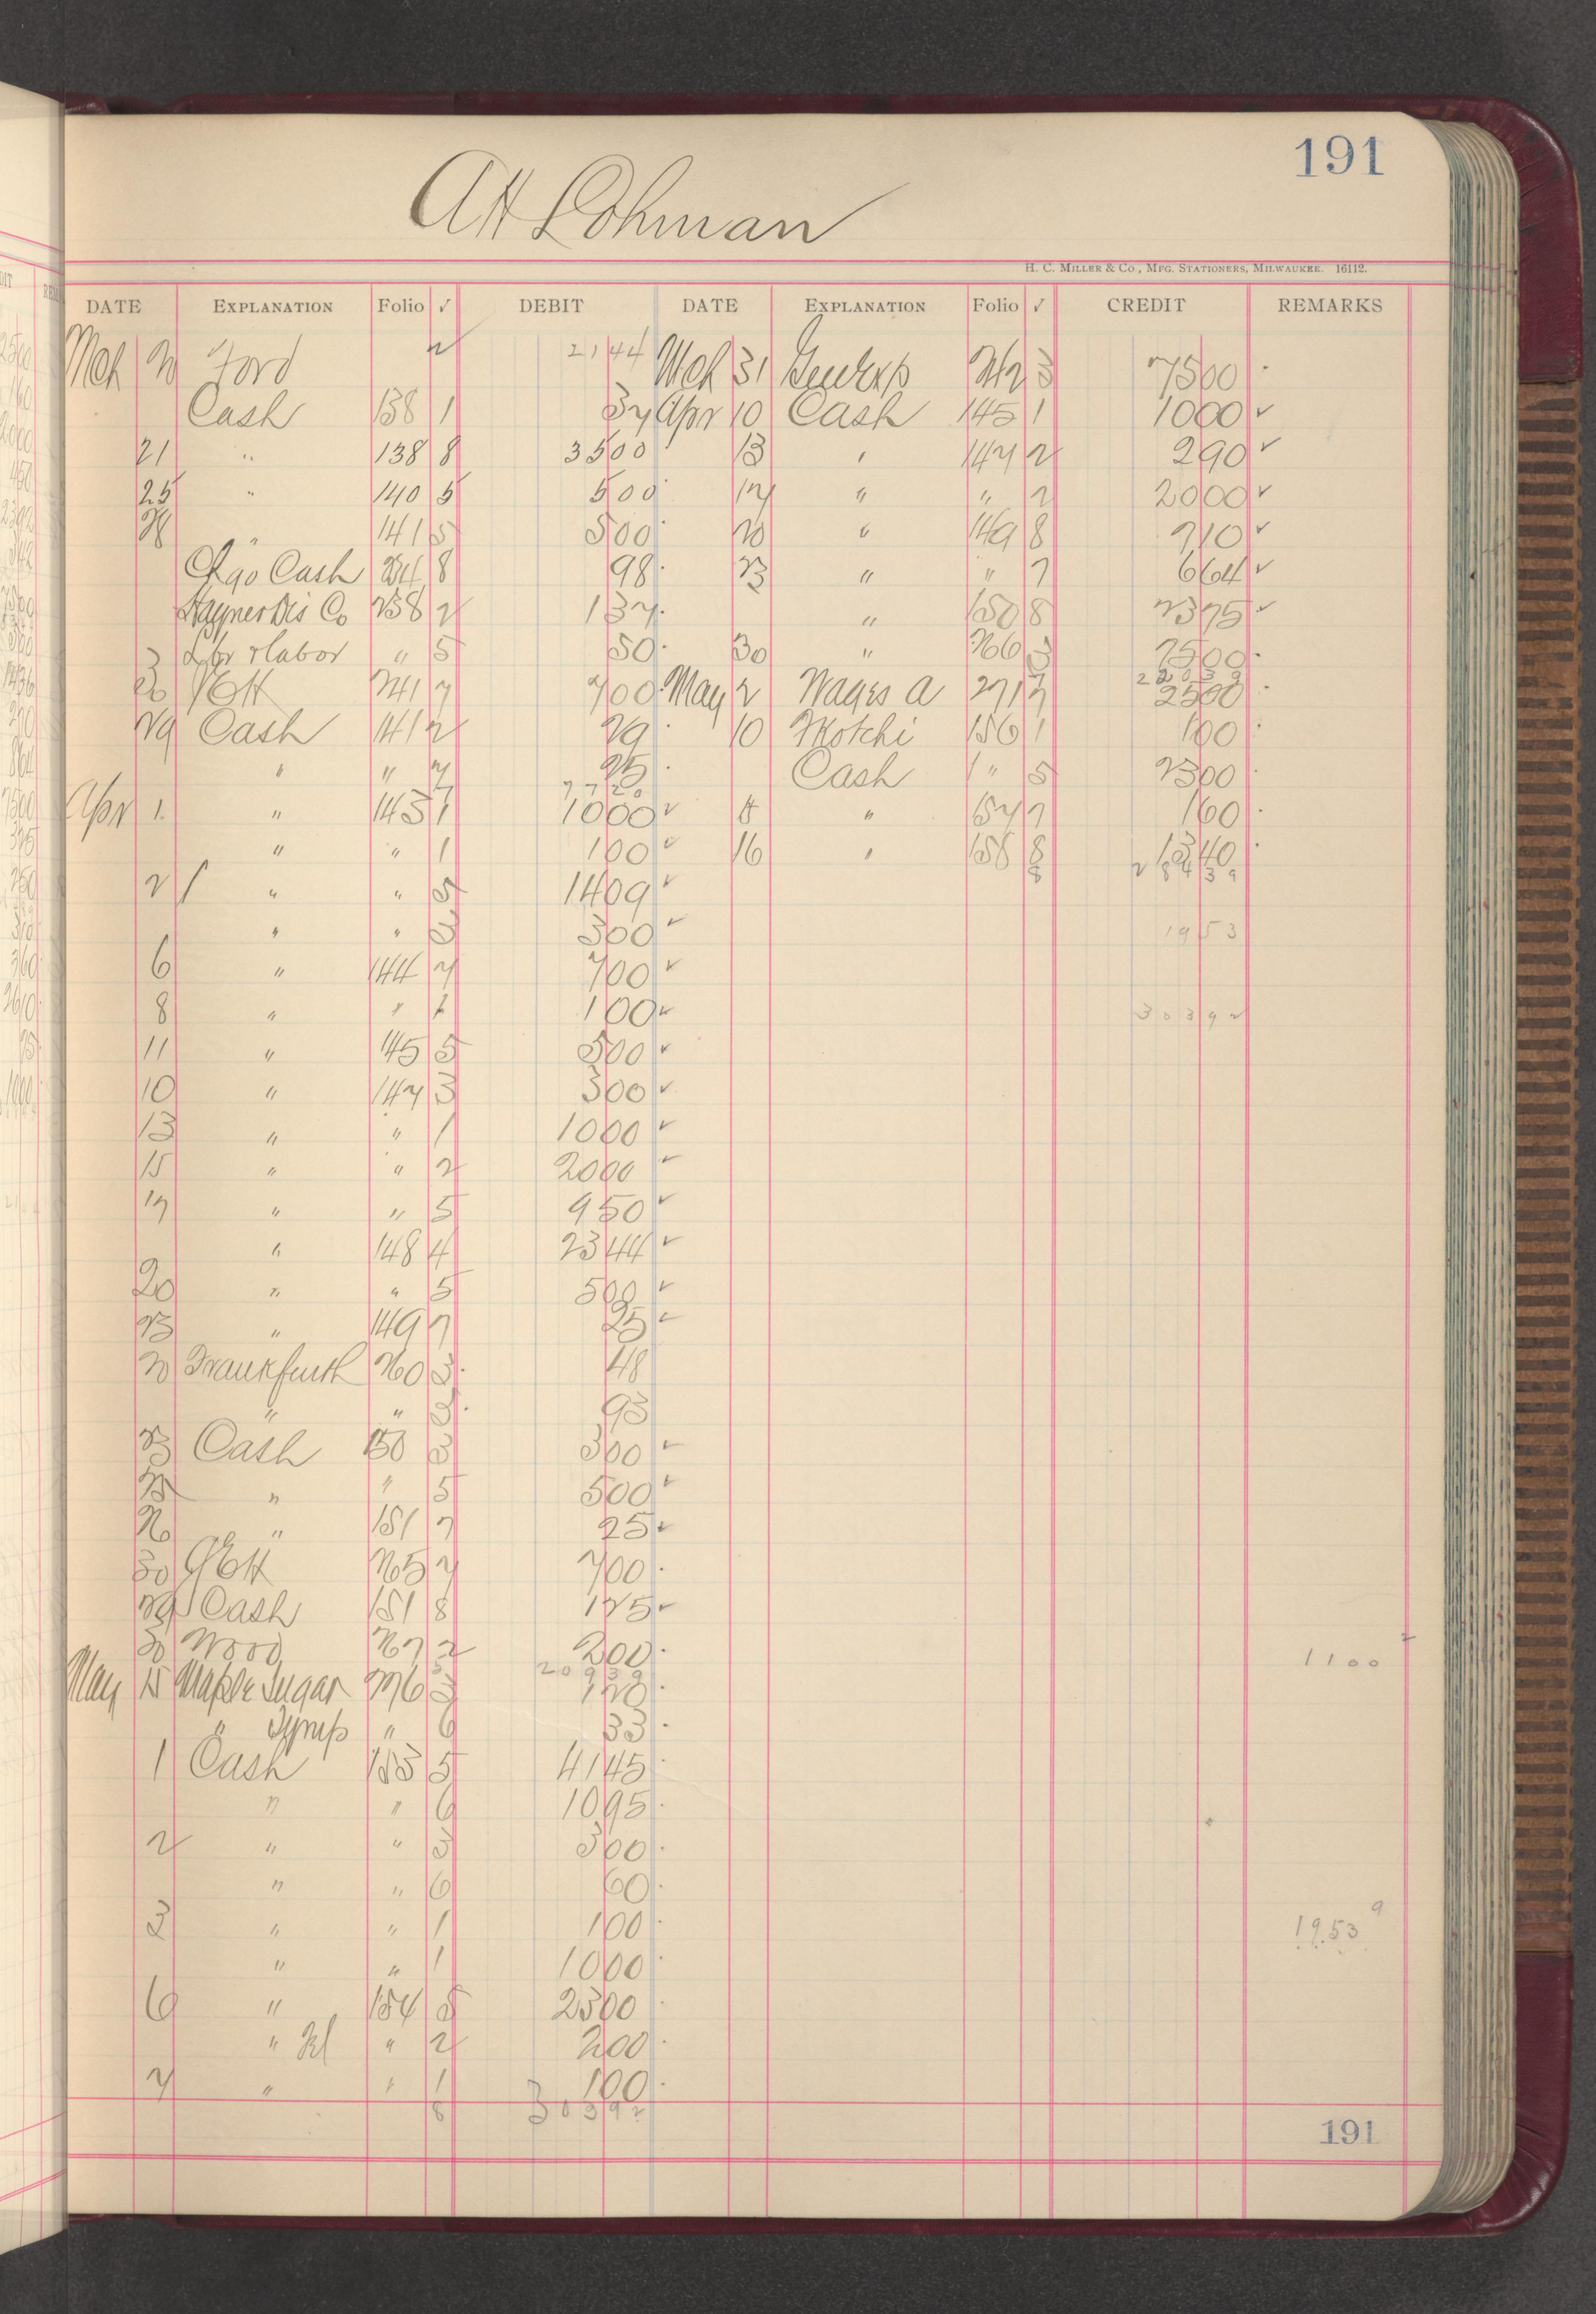 191
AH Lohman
H. C. Miller & Co., Mfg. Stationers, Milwaukee. 16112.
DATE Explanation Folio ✓ DEBIT DATE Explanation Folio ✓ CREDIT REMARKS
Mch 20 Ford 2 2144 Mch 31 242 3 7500
Cash 138 1 37 Apr 10 Cash 145 1 1000 ✓
21 " 138 8 3500 13 " 147 2 290 ✓
25 " 140 5 500 17 " " 2 2000 ✓
" 141 5 500 20 " 149 8 710 ✓
Chgo Cash 234 8 98 23 " " 7 664 ✓
Hayner Dis Co 238 2 137 " 150 8 2375 ✓
labor " 5 50 30 " 266 3 7500
22039
30 241 7 700 May 2 Wages a 271 7 2500
29 Cash 141 2 29 10 Motchi 156 1 100
" " 7 25 Cash " 5 2300
7720
Apr 1 " 143 7 1000 ✓ 8 " 157 7 160
" " 1 100 ✓ 16 " 158 8 1340
8 28439
2 / " " 5 1409 ✓
" " 3 300 ✓ 1953
6 " 144 7 700 ✓
8 " " 1 100 ✓ 30392
11 " 145 5 500 ✓
10 " 147 3 300 ✓
13 " " 1 1000 ✓
15 " " 2 2000 ✓
17 " " 5 950 ✓
" 148 4 2344 ✓
20 " " 5 500 ✓
23 " 149 7 25 ✓
20 Frankfurth 260 3 48
" " 3 93
23 Cash 150 3 300 ✓
25 " " 5 500 ✓
26 " 151 7 25 ✓
30 265 7 700
29 Cash 151 8 125 ✓
30 Wood 267 2 200 1100 2
20939
May 15 Maple Sugar 276 3 120
" Syrup " 6 33
1 Cash 153 5 4145
" " 6 1095
2 " " 3 300
" " 6 60
3 " " 1 100 1953 9
" " 1 1000
6 " 154 5 2300
" " 2 200
7 " " 1 100
8 30392
191